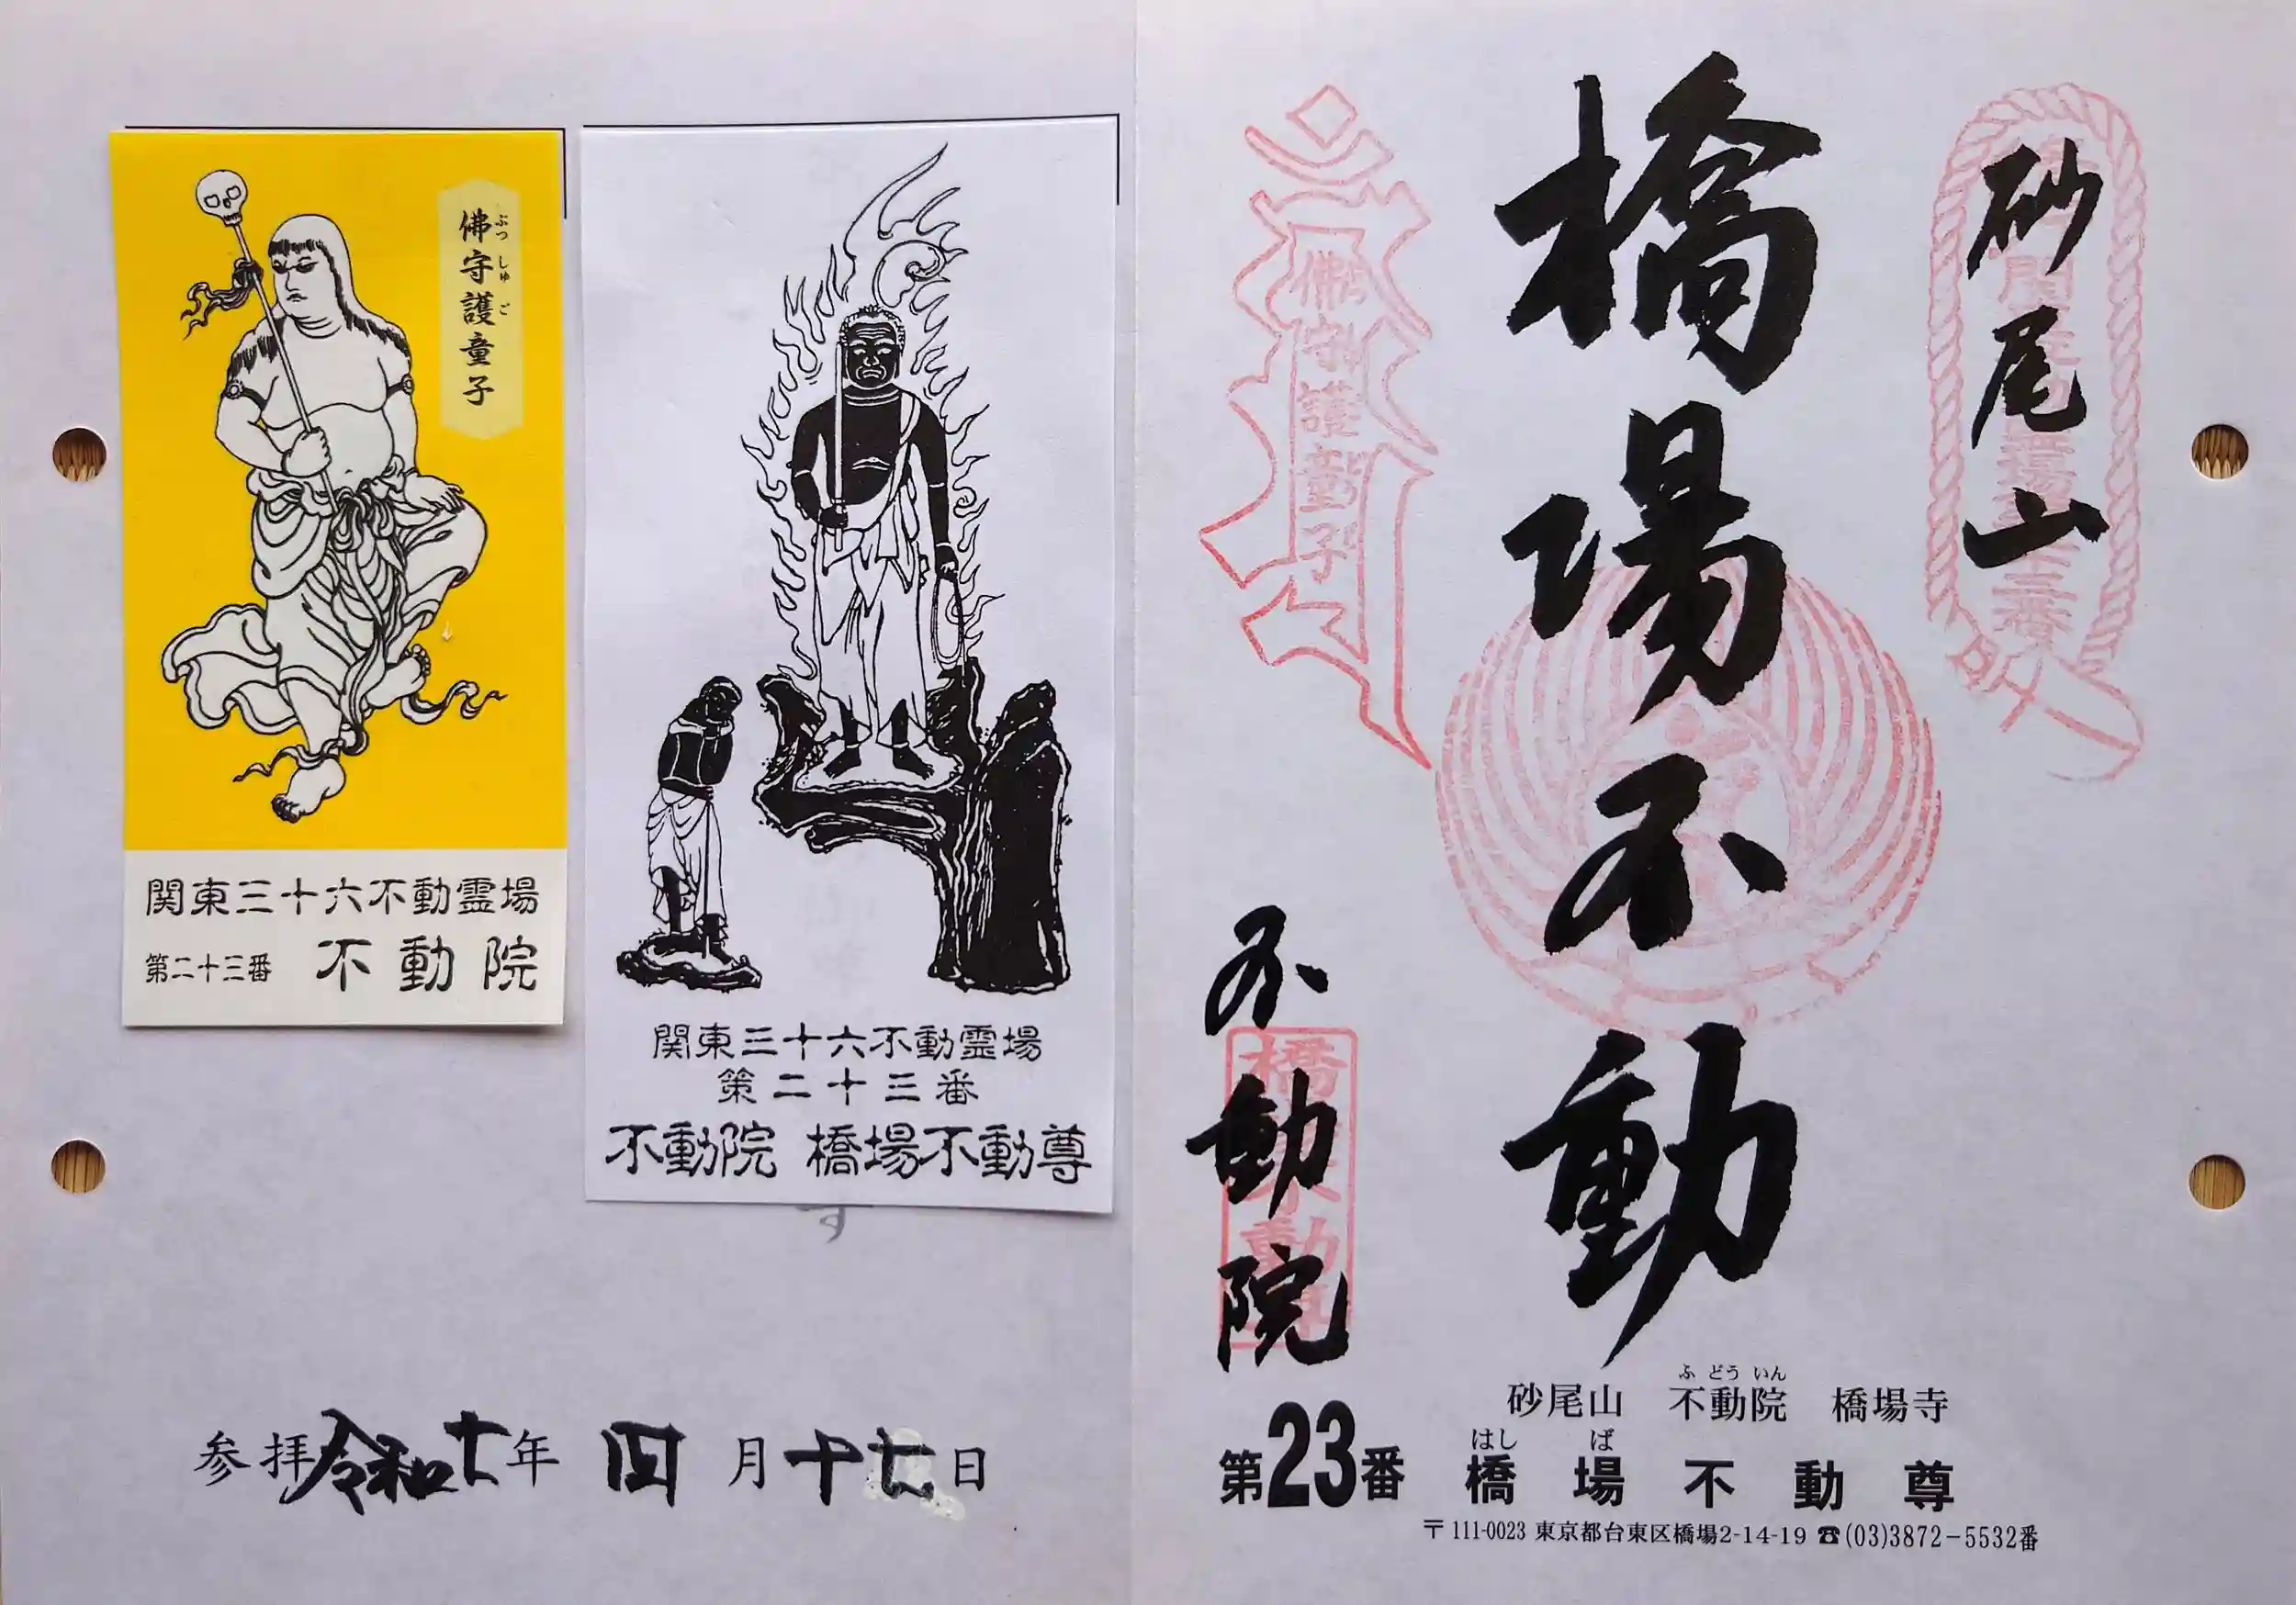 砂尾山
橋場不動
不動院
佛守護童子
橋場不動尊
佛守護童子
ぶつ しゅ ご
関東三十六不動霊場
第二十三番 不動院
関東三十六不動霊場
第二十三番
不動院 橋場不動尊
参拝令和七年 四月十七日
ふ どう いん
砂尾山 不動院 橋場寺
はし ば
第23番 橋場不動尊
〒111-0023 東京都台東区橋場2-14-19 ☎(03)3872-5532番